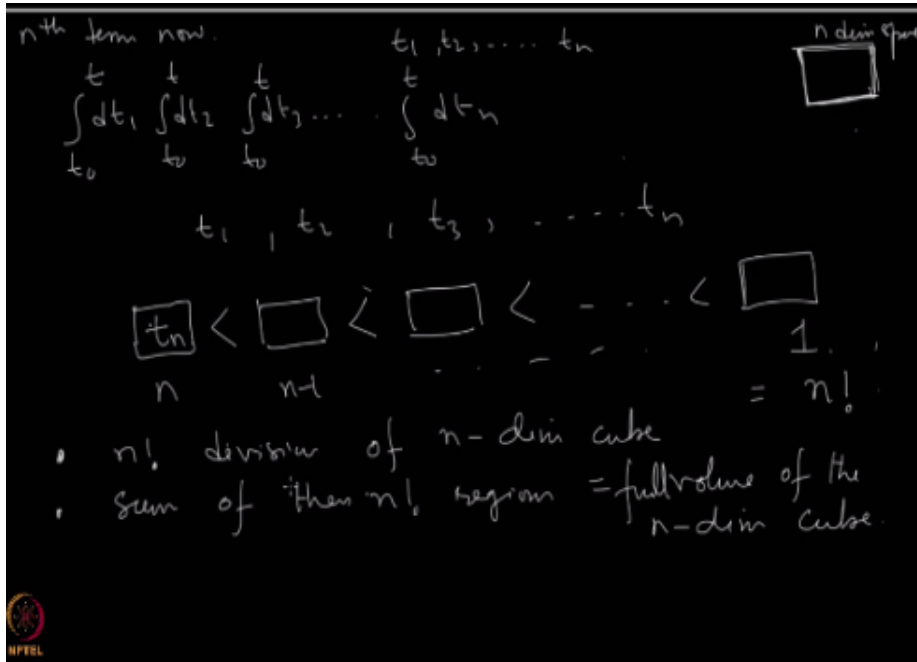 nth term now.
t1, t2, ..... tn
n dim space
t t t t
∫dt1 ∫dt2 ∫dt3 .... ∫ dtn
t0 t0 t0 t0
t1, t2, t3, ..... tn
tn < □ < □ < - ... < □
n n-1 ..---. 1.
= n!
• n! division of n-dim cube
• sum of then n! region = full volume of the
n-dim cube.
NPTEL